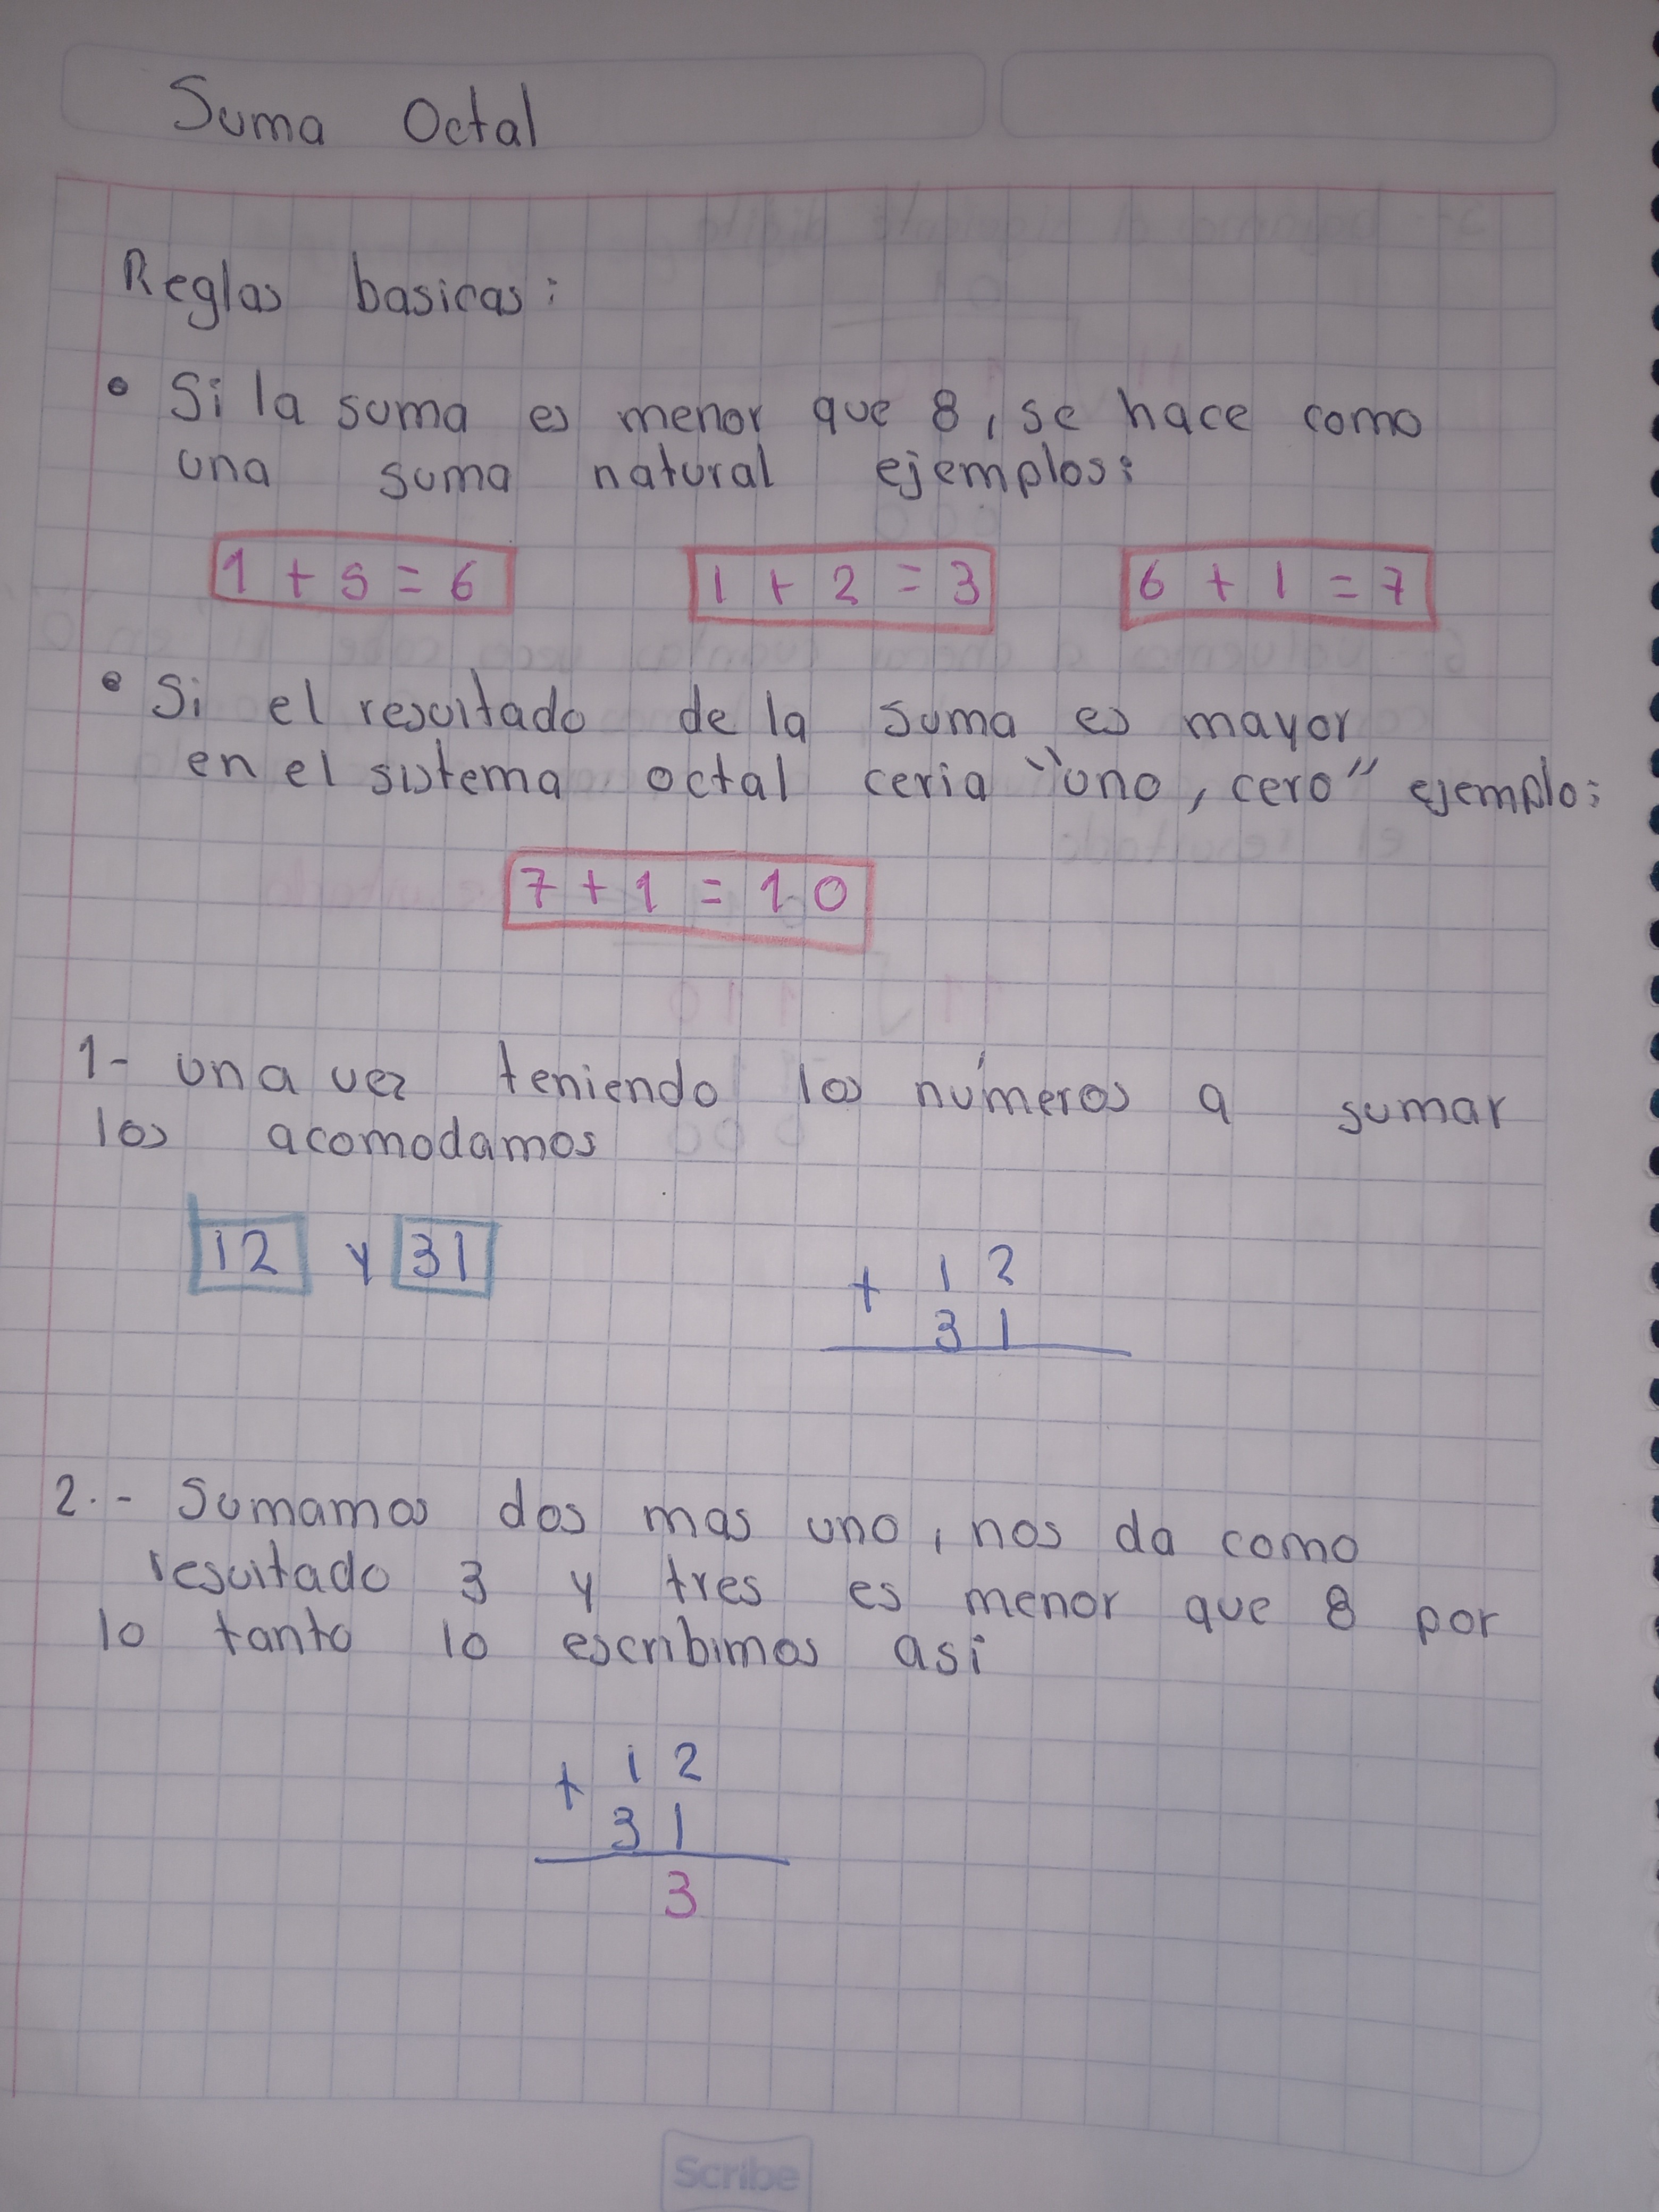 Suma Octal
Reglas basicas:
• Si la suma es menor que 8, se hace como
una suma natural ejemplos:
1 + 5 = 6 1 + 2 = 3 6 + 1 = 7
• Si el resultado de la suma es mayor
en el sistema octal ceria "uno, cero" ejemplo:
7 + 1 = 10
1- una vez teniendo los números a sumar
los acomodamos
12 y 31
+ 12
31
2.- Sumamos dos mas uno, nos da como
resultado 3 y tres es menor que 8 por
lo tanto lo escribimos asi
+ 12
31
3
Scribe